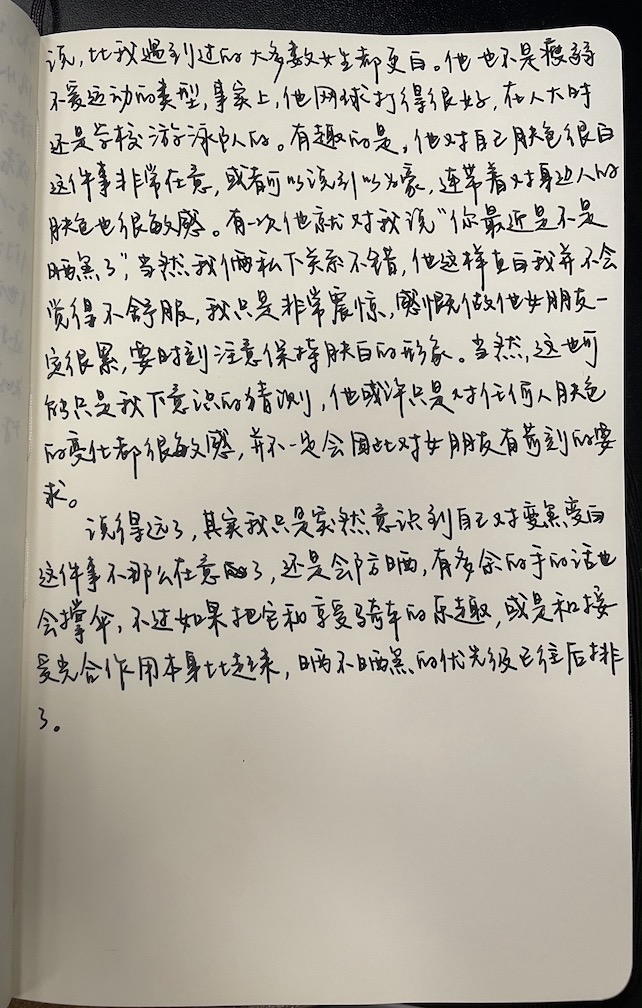 说,比我遇到过的大多数女生都更白。他也不是瘦弱
不爱运动的类型,事实上,他网球打得很好,在人大时
还是学校游泳队的。有趣的是,他对自己肤色很白
这件事非常在意,或者可以说引以为豪,连带着对身边人的
肤色也很敏感。有一次他就对我说“你最近是不是
晒黑了”,当然我俩私下关系不错,他这样直白我并不会
觉得不舒服,我只是非常震惊,感慨做他女朋友一
定很累,要时刻注意保持肤白的形象。当然,这也可
能只是我下意识的猜测,他或许只是对任何人肤色
的变化都很敏感,并不一定会因此对女朋友有苛刻的要
求。
说得远了,其实我只是突然意识到自己对变黑变白
这件事不那么在意了,还是会防晒,有多余的手的话也
会撑伞,不过如果把它和享受骑车的乐趣,或是和接
受光合作用本身比起来,晒不晒黑的优先级已往后排
了。